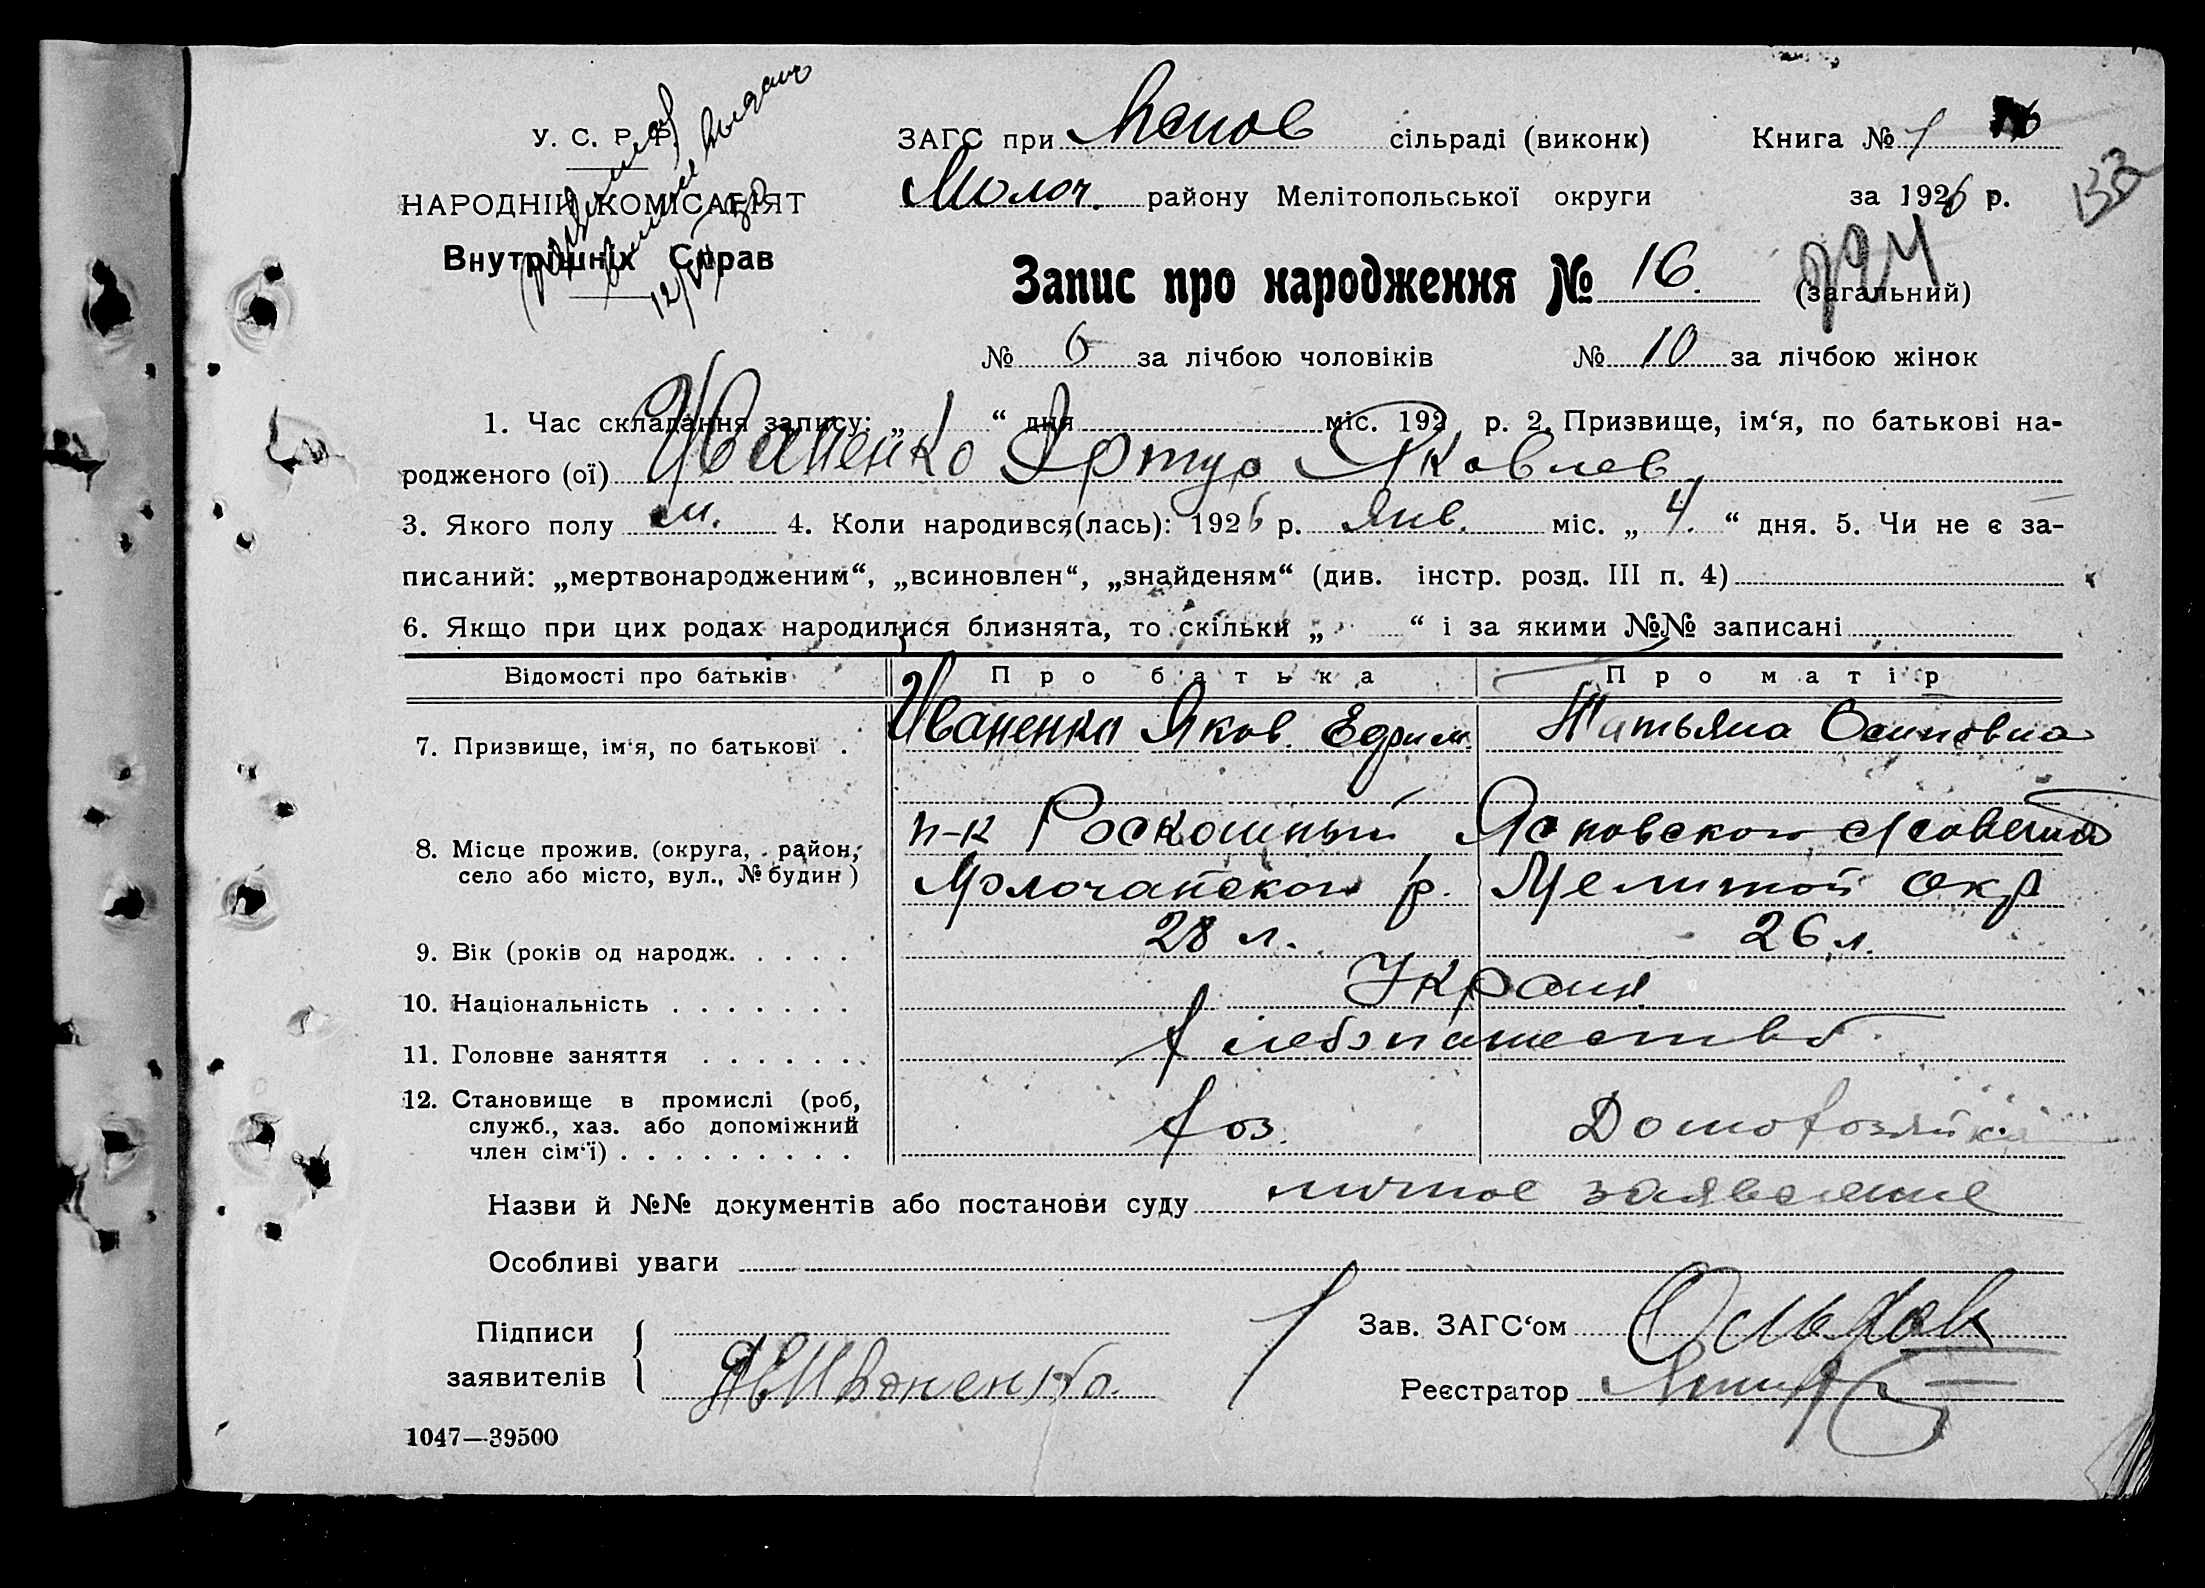 У. С. Р. Р.
НАРОДНІЙ КОМІСАРІЯТ
Внутрішніх Справ
ЗАГС при Яснов сільраді (виконк) Книга № 1
Молоч. району Мелітопольської округи за 1926 р.
132
Запис про народження № 16. (загальний)
№ 6 за лічбою чоловіків № 10 за лічбою жінок
1. Час складання запису: „ “ дня міс. 192 р. 2. Призвище, ім‘я, по батькові на-
родженого (ої) Иваненко Артур Яковлев
3. Якого полу м. 4. Коли народився(лась): 1926 р. Янв. міс. „ 4. “ дня. 5. Чи не є за-
писаний: „мертвонародженим“, „всиновлен“, „знайденям“ (див. інстр. розд. III п. 4)
6. Якщо при цих родах народилися близнята, то скільки „ “ і за якими №№ записані
Відомості про батьків Про батька Про матір
7. Призвище, ім‘я, по батькові . Иваненко Яков Ефрим. Татьяна Осиповна
8. Місце прожив. (округа, район, п-к Роскошный Ясновского с/совета
село або місто, вул., № будин) Молочанского р. Мелитоп окр
9. Вік (років од народж. . . . . 28 л. 26 л.
10. Національність . . . . . . . Украин.
11. Головне заняття . . . . . . Хлебопашество
12. Становище в промислі (роб,
служб., хаз. або допоміжний хоз. Домохозяйка
член сім‘ї) . . . . . . . . .
Назви й №№ документів або постанови суду личное заявление
Особливі уваги
Підписи Зав. ЗАГС‘ом
заявителів Иваненко. Реєстратор
1047—39500